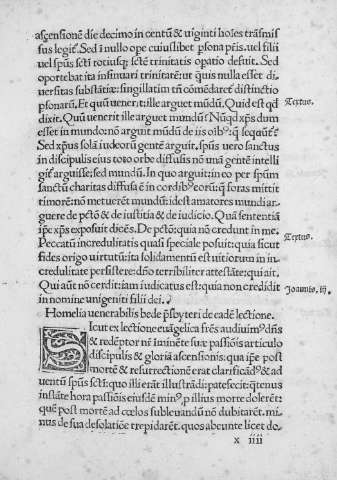 ascensionē die decimo in centū & uiginti hoīes trāsmis
sus legiť. Sed ī nullo ope cuiuslibet psona pr̄is. uel filii
uel sp̄us sc̄ti totiusq; sc̄tē trinitatis opatio desuit. Sed
oportebat ita insinuari trinitatē: ut q̄uis nulla esset di
uersitas substātiæ: singillatim tn̄ cōmēdareť distinctio
psonarū. Et quū uenerit: ille arguet mūdū. Quid est qd̄
Textus.
dixit. Quū uenerit ille arguet mundū? Nūqd xp̄us dum
esset in mundo: nō arguit mūdū de iis oībꝰ: q̄ seq̄unť?
Sed xp̄us solā iudeorū gentē arguit. sp̄us uero sanctus
in discipulis eius toto orbe diffusis nō unā gentē intelli
giť arguisse: sed mūdū. In quo arguit: in eo per sp̄um
sanctū charitas diffusa ē in cordibꝰ eorū: q̄ foras mittit
timorē: nō metuerēt mundū: idest amatores mundi ar-
guere de pctō & de iustitia & de iudicio. Quā sententiā
ip̄e xp̄s exposuit dicēs. De pctō: quia nō credunt in me.
Textus.
Peccatū incredulitatis quasi speciale posuit: quia sicut
fides origo uirtutū: ita solidamentū est uitiorum in in-
credulitate persistere: dn̄o terribiliter attestāte: qui ait.
Qui aūt nō cerdit: iam iudicatus est: quia non credidit
Joannis. iij.
in nomine unigeniti filii dei.
Homelia uenerabilis bedę p̄sbyteri de eadē lectione.
Sicut ex lectione euāgelica frēs audiuimꝰ dn̄s
& redēptor nr̄ īminēte suæ passiōis articulo
discipulis & gloriā ascensionis: qua ip̄e post
mortē & resurrectionē erat clarificādꝰ & ad
uentū sp̄us sc̄ti: quo illi erāt illustrādi: patefecit: q̄tenus
instāte hora passiōis eiusdē minꝰ p illius morte dolerēt:
quē post mortē ad cœlos subleuandū nō dubitarēt. mi-
nus de sua desolatiōe trepidarēt. quos abeunte licet do-
x iiii